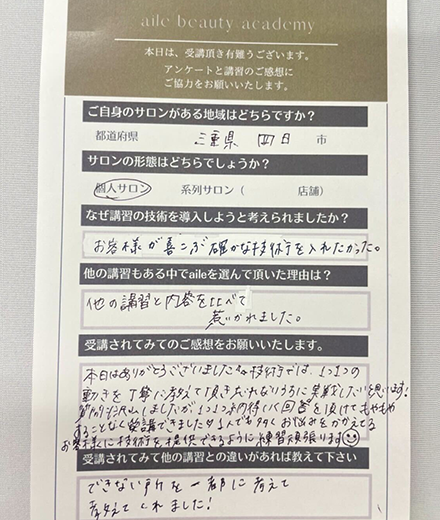 aile beauty academy
本日は、受講頂き有難うございます。
アンケートと講習のご感想に
ご協力をお願いいたします。
ご自身のサロンがある地域はどちらですか？
都道府県 三重県 四日 市
サロンの形態はどちらでしょうか？
個人サロン 系列サロン（ 店舗）
なぜ講習の技術を導入しようと考えられましたか？
お客様が喜こぶ確かな技術を入れたかった。
他の講習もある中でaileを選んで頂いた理由は？
他の講習と内容を比べて
惹いかれました。
受講されてみてのご感想をお願いいたします。
本日はありがとうございました。技術では、1つ1つの
動きを丁寧に教えて頂き忘れないように実践したいと思います！
質問沢山しましたが1つ1つ回答を頂けてもやもや
することなく受講できました。1人でも多くお悩みをかかえてる
お客様に技術を提供できるように練習頑張ります
受講されてみて他の講習との違いがあれば教えて下さい
できない所を一緒に考えて
教えてくれました！